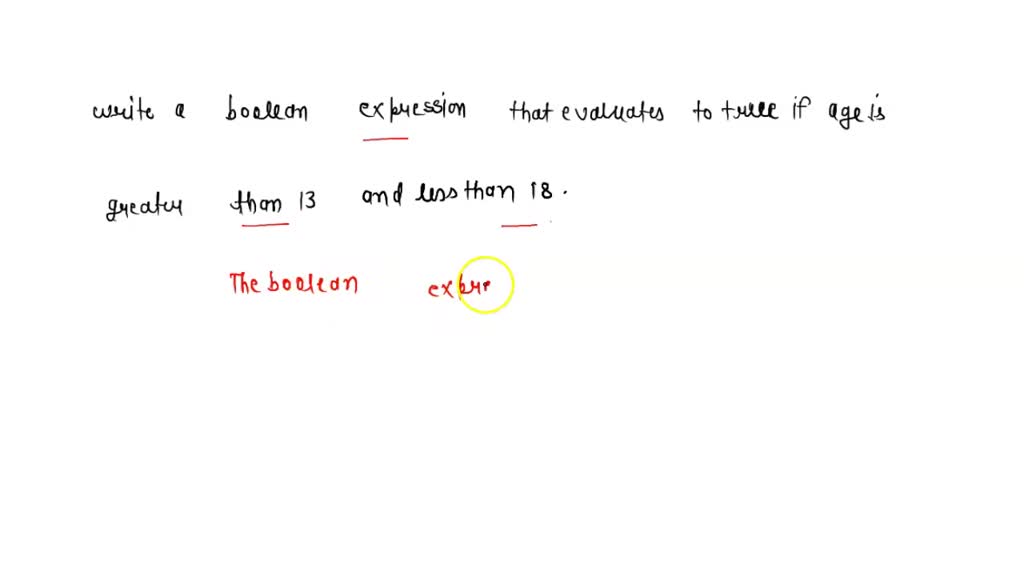 write a boolean expression that evaluates to true if age is
greater than 13 and less than 18.
The boolean expre